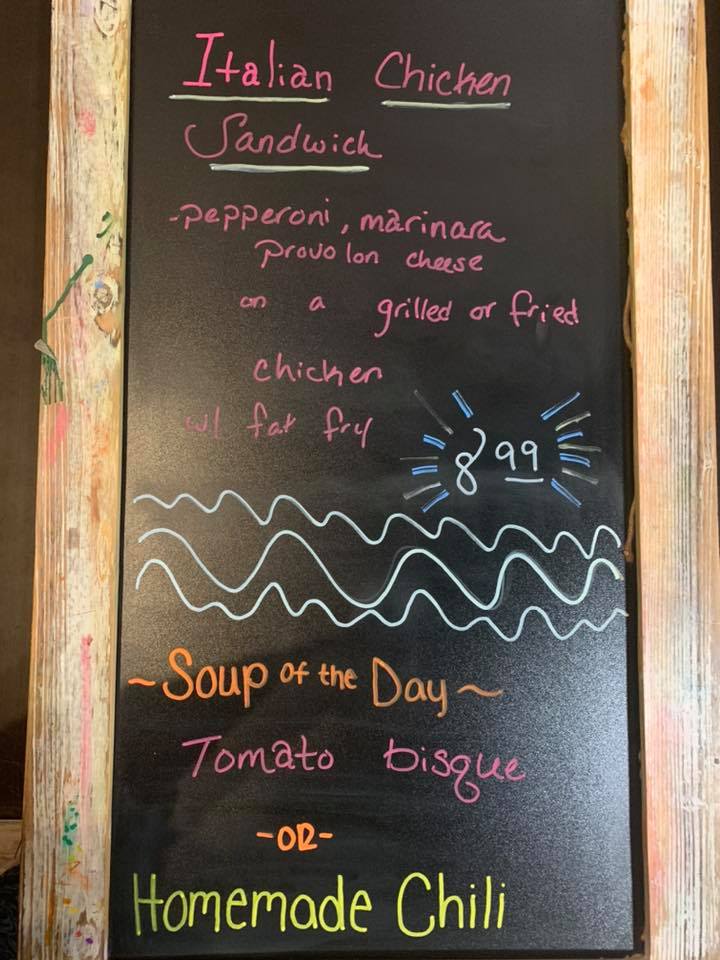 Italian Chicken
Sandwich
-pepperoni, marinara
provolon cheese
on a grilled or fried
chicken
w/ fat fry
8 99
~Soup of the Day~
Tomato bisque
-OR-
Homemade Chili